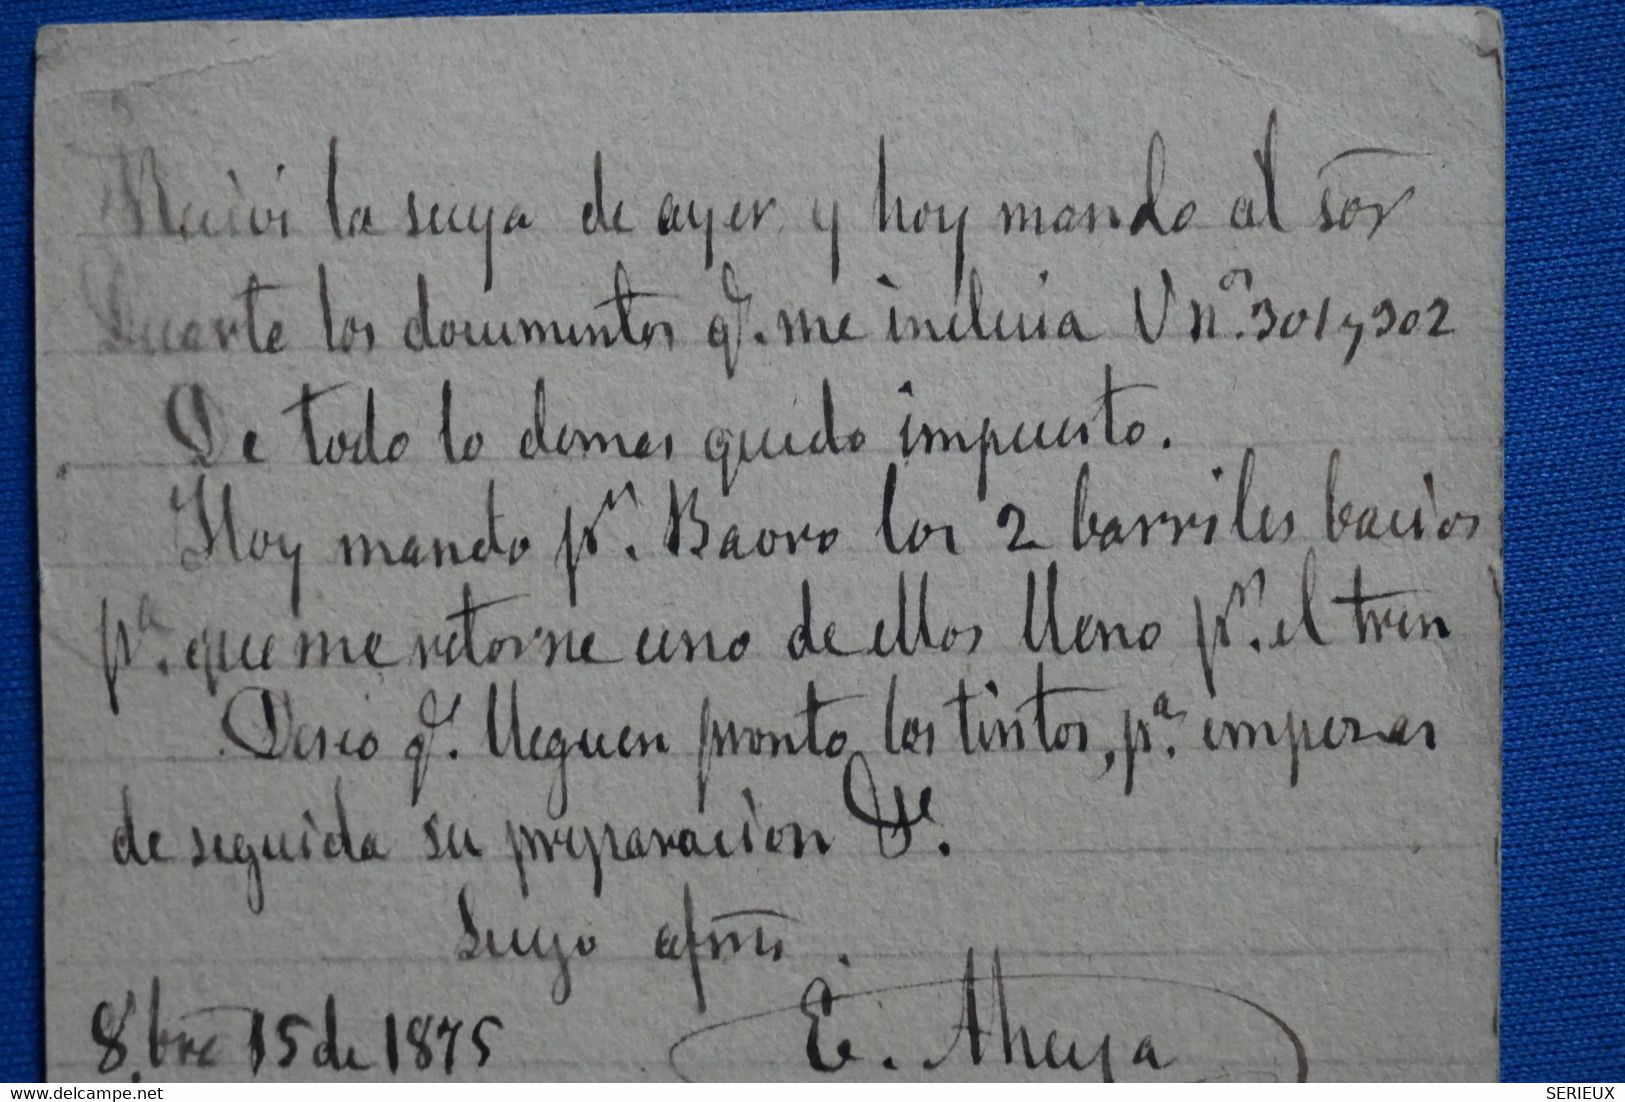 Recivi la suya de ayer y hoy mando al Sor
Duarte los documentos q. me incluia V nº. 301 y 302
De todo lo demas quedo impuesto.
Hoy mando pr. Baoro los 2 barriles bacios
pa. que me retorne uno de ellos lleno pr. el tren
Deseo q. lleguen pronto los tintos, pa. empezar
de seguida su preparacion
Suyo afmo.
8.bre 15 de 1875
E. Aheya
delcampe.net
SERIEUX